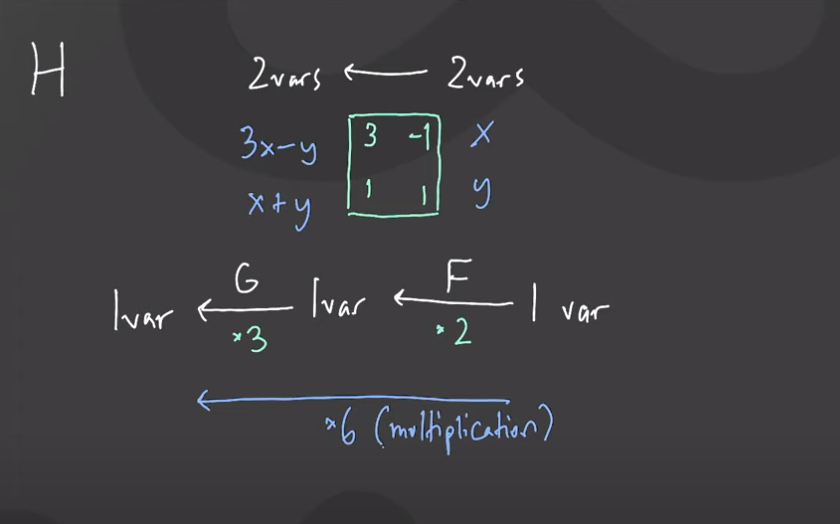 H
2vars ← 2vars
3x-y 3 -1 x
x+y 1 1 y
G F
1var ← 1var ← 1 var
×3 ×2
←
×6 (multiplication)